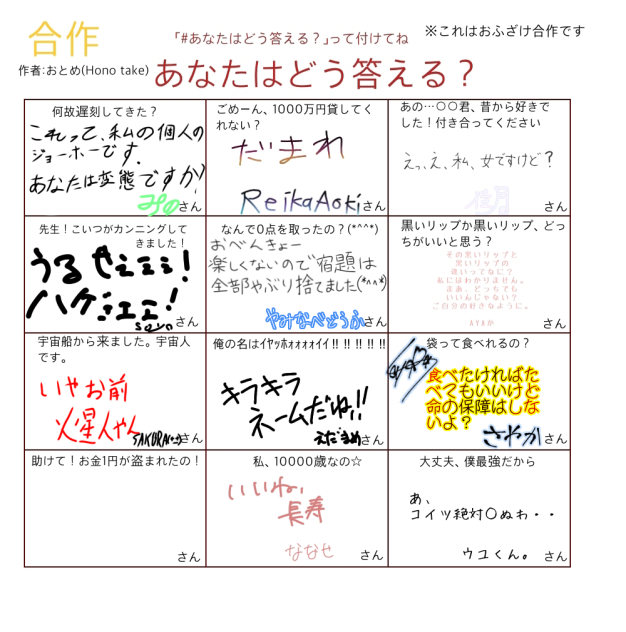 合作
「#あなたはどう答える？」って付けてね
※これはおふざけ合作です
作者:おとめ(Hono take)
あなたはどう答える？
何故遅刻してきた？
これって、私の個人の
ジョーホーです．
あなたは変態ですか)
みの
さん
ごめーん、1000万円貸してく
れない？
だまれ
ReikaAoki
さん
あの…〇〇君、昔から好きで
した！付き合ってください
えっ、え、私、女ですけど？
さん
先生！こいつがカンニングして
きました！
うるせェミミ！
ハゲェエニ！
さん
なんで0点を取ったの？(*^^*)
おべんきょー
楽しくないので宿題は
全部やぶり捨てました(*^^*)
やみなべどうふ
さん
黒いリップか黒いリップ、どっ
ちがいいと思う？
その黒いリップと
黒いリップの
違いってなに？
私にはわかりません。
まあ、どっちでも
いいんじゃない？
ご自分の好きなように。
AYAか
さん
宇宙船から来ました。宇宙人
です。
いやお前
火星人やん
SAKURA
さん
俺の名はｲﾔｯﾎｫｫｫｫｲｲ！！！！！！
キラキラ
ネームだね!!
えだまめ
さん
袋って食べれるの？
食べたければた
べてもいいけど
命の保障はしな
いよ？
さやか
さん
助けて！お金1円が盗まれたの！
さん
私、10000歳なの☆
いいね、
長寿
ななせ
さん
大丈夫、僕最強だから
あ、
コイツ絶対〇ぬわ・・
ウユくん。
さん